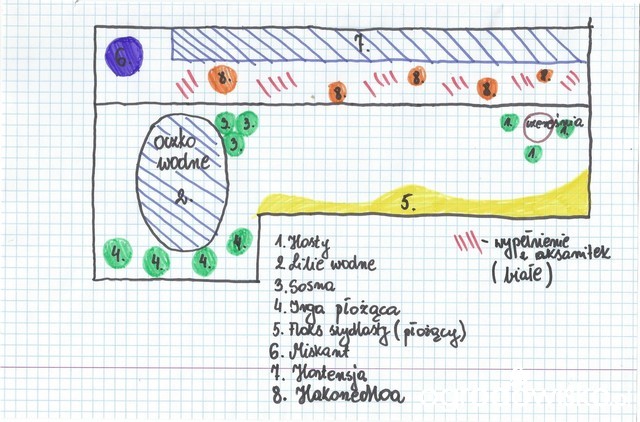 7.
6.
8.
8.
8.
8.
8.
2. 3.
3.
Oczko
wodne
2.
1. czereśnia 1.
1.
5.
4. 4. 4. 4.
1. Hosty
2 Lilie wodne
3. Sosna
4. Irga płożąca
5. Floks szydlasty (płożący)
6. Miskant
7. Hortensja
8. Hakonechloa
- wypełnienie
z aksamitek
(białe)